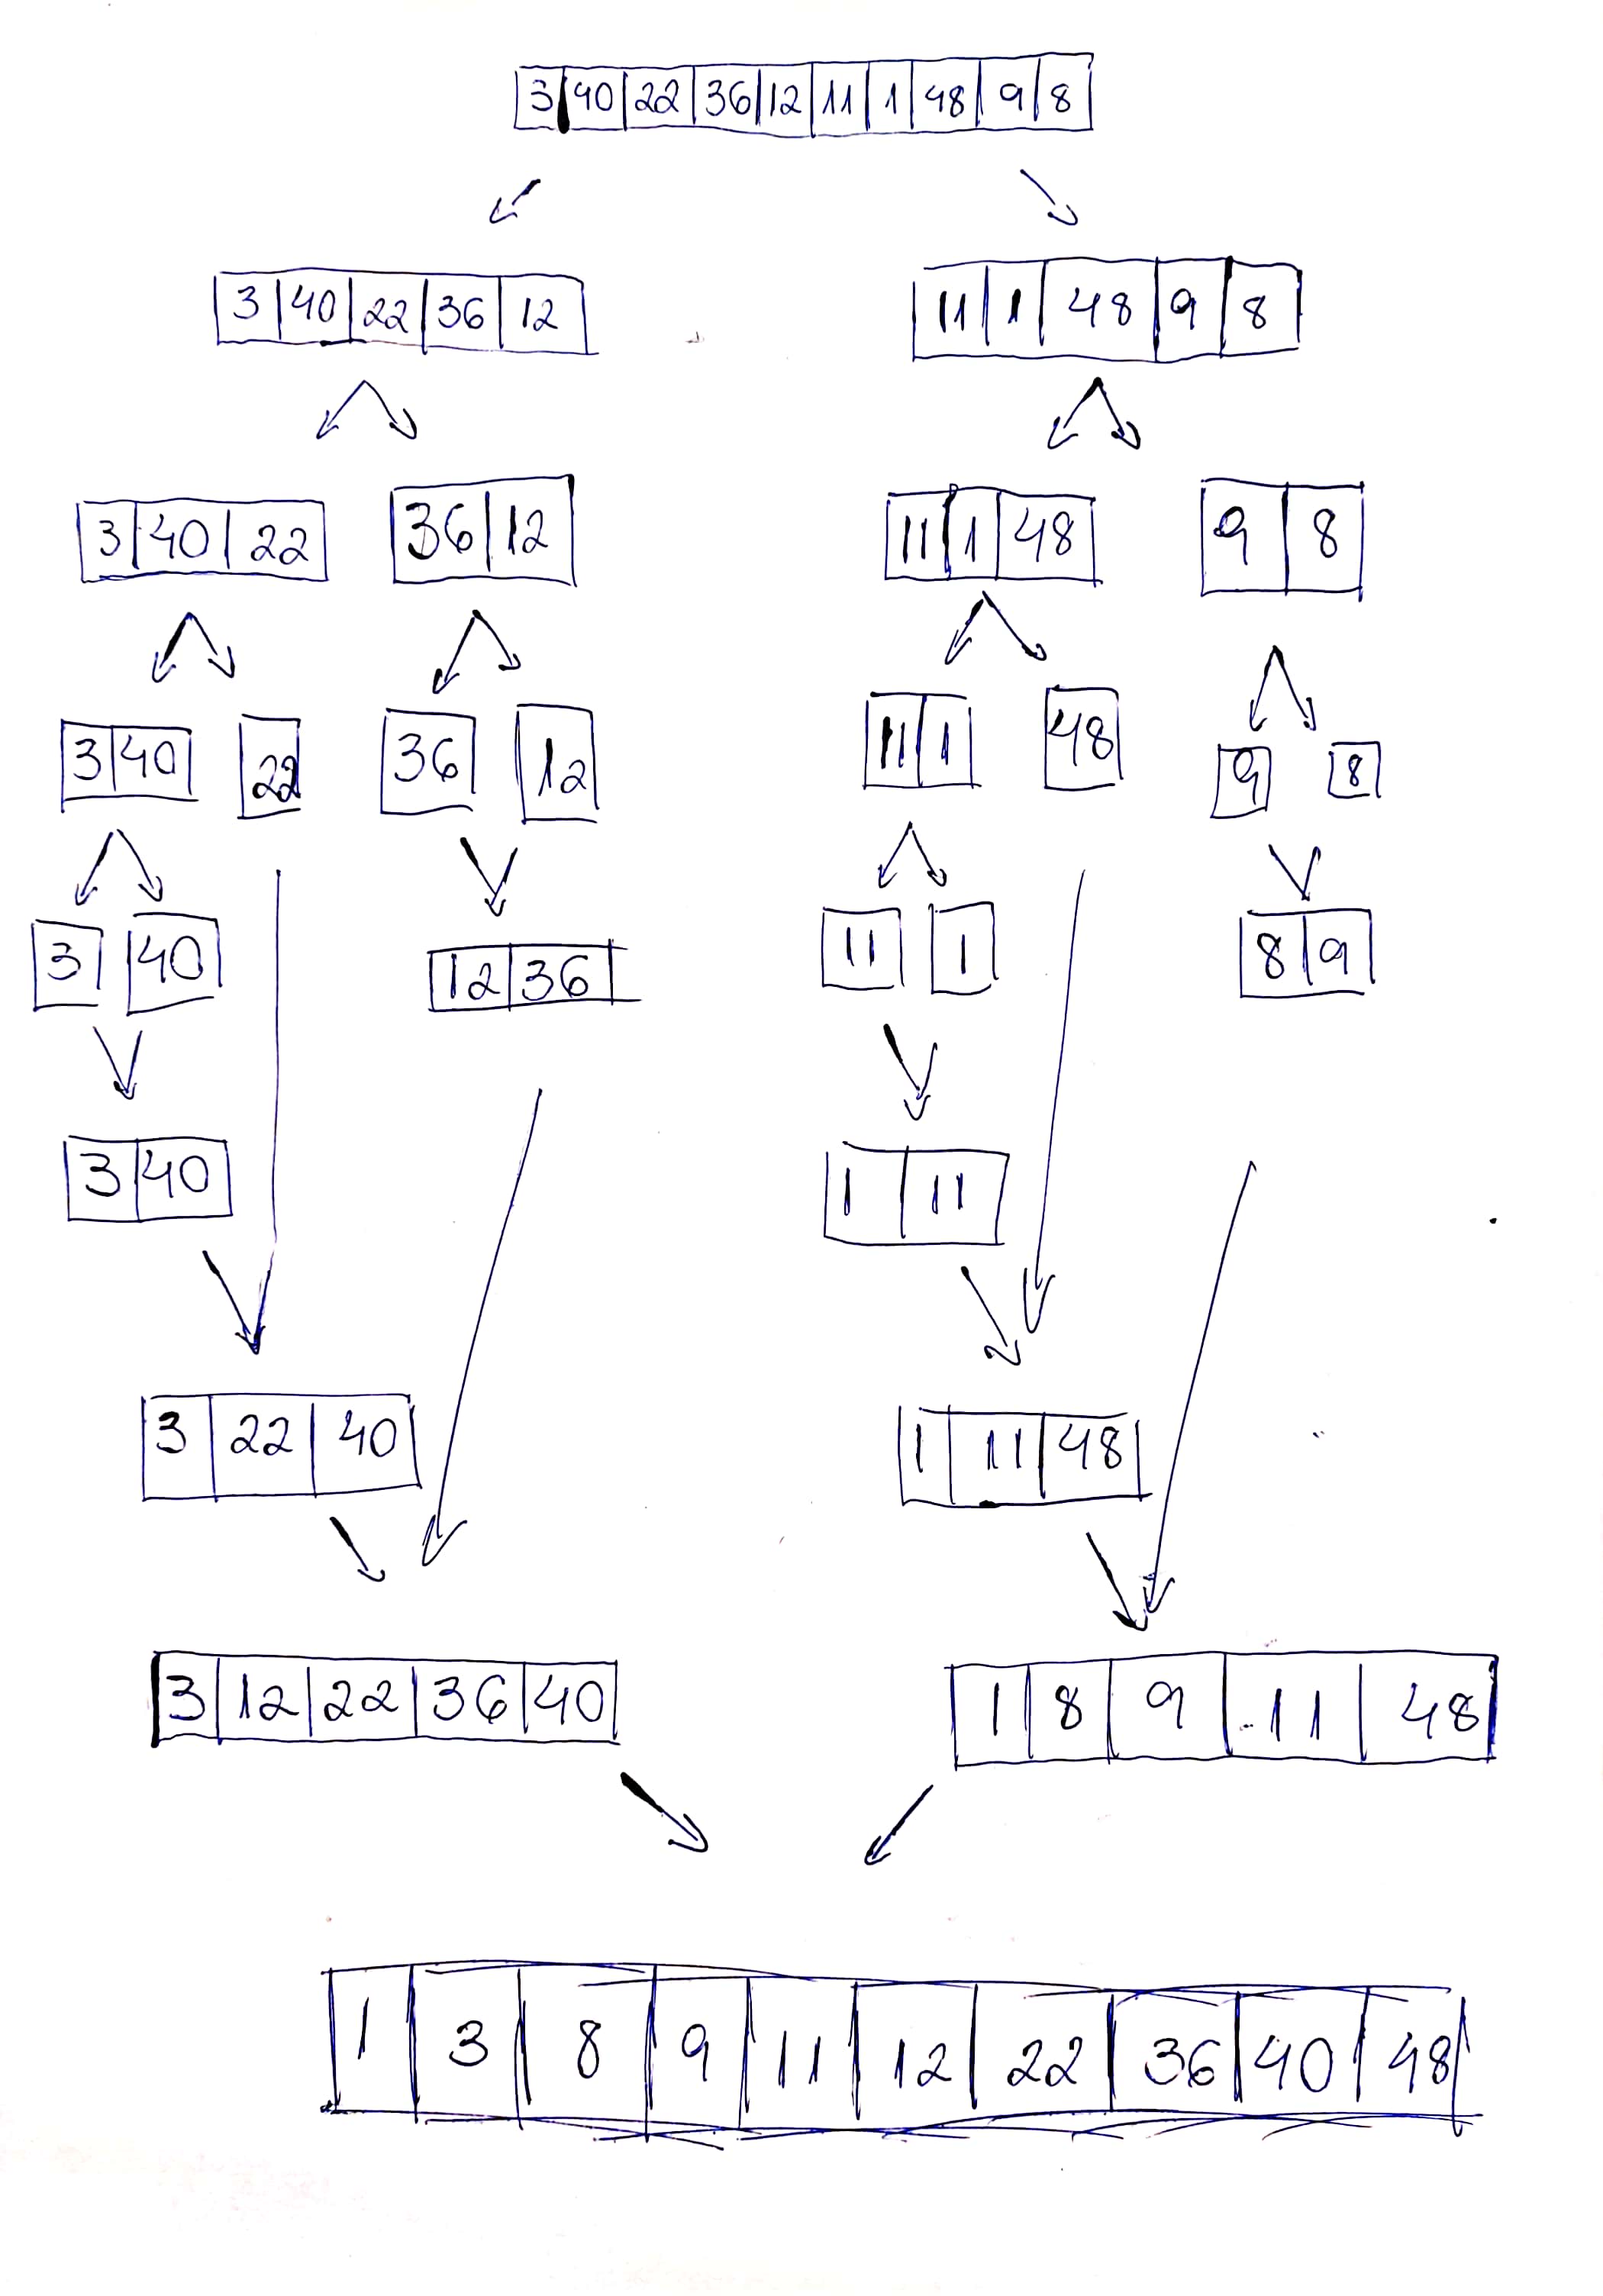 3 40 22 36 12 11 1 48 9 8
3 40 22 36 12 11 1 48 9 8
3 40 22 36 12 11 1 48 9 8
3 40 22 36 12 11 1 48 9 8
3 40 12 36 11 1 8 9
3 40 1 11
3 22 40 1 11 48
3 12 22 36 40 1 8 9 11 48
1 3 8 9 11 12 22 36 40 48